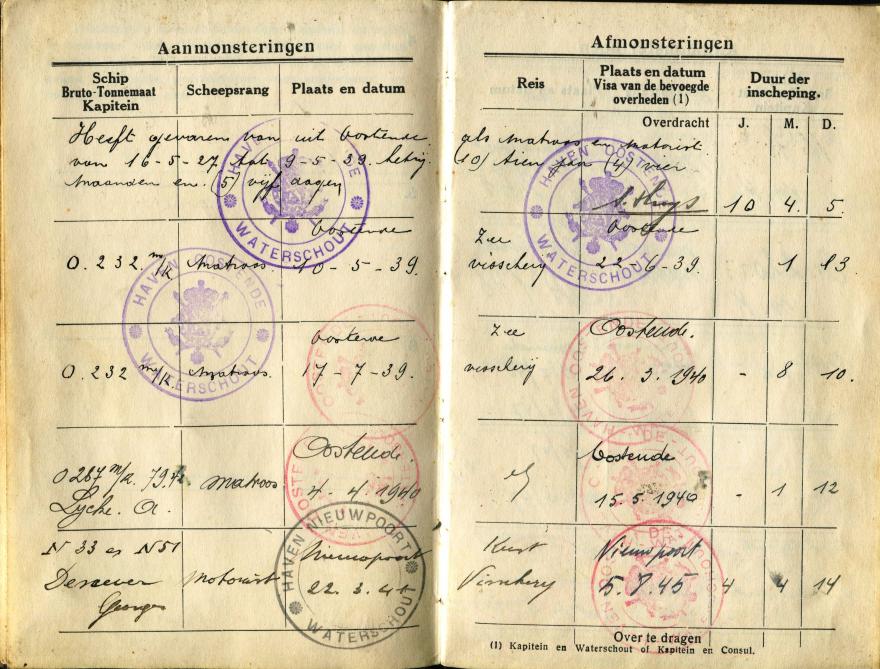 Aanmonsteringen
Schip
Bruto-Tonnemaat
Kapitein
Scheepsrang
Plaats en datum
Heeft gevaren van uit Oostende
van 16-5-27 tot 9-5-39. hetzij
Maanden en (5) vijf dagen
HAVEN OOSTENDE
WATERSCHOUT
Oostende
O. 232. m/k Matroos. 10-5-39.
HAVEN OOSTENDE
WATERSCHOUT
Oostende
O. 232 m/k. Matroos. 17-7-39.
Oostende.
O 287 m/k. 79.42 Matroos 4. 4. 1940
Lycke. A.
N 33 es N 51 Nieuwpoort
Motorist 22. 3. 41
Georges
HAVEN NIEUWPOORT
WATERSCHOUT
Afmonsteringen
Reis
Plaats en datum
Visa van de bevoegde
overheden (1)
Duur der
inscheping.
Overdracht J. M. D.
als Matroos en Motorist.
(10) tien jaar (4) vier
10 4. 5.
HAVEN OOSTENDE
WATERSCHOUT
Zee Oostende
visscherij 22-6-39. 1 13
Zee Oostende.
visscherij 26. 3. 1940 - 8 10.
Oostende
15.5.1940 - 1 12
Kust Nieuwpoort
Visscherij 5.7.45 4 4 14
Over te dragen
(1) Kapitein en Waterschout of Kapitein en Consul.